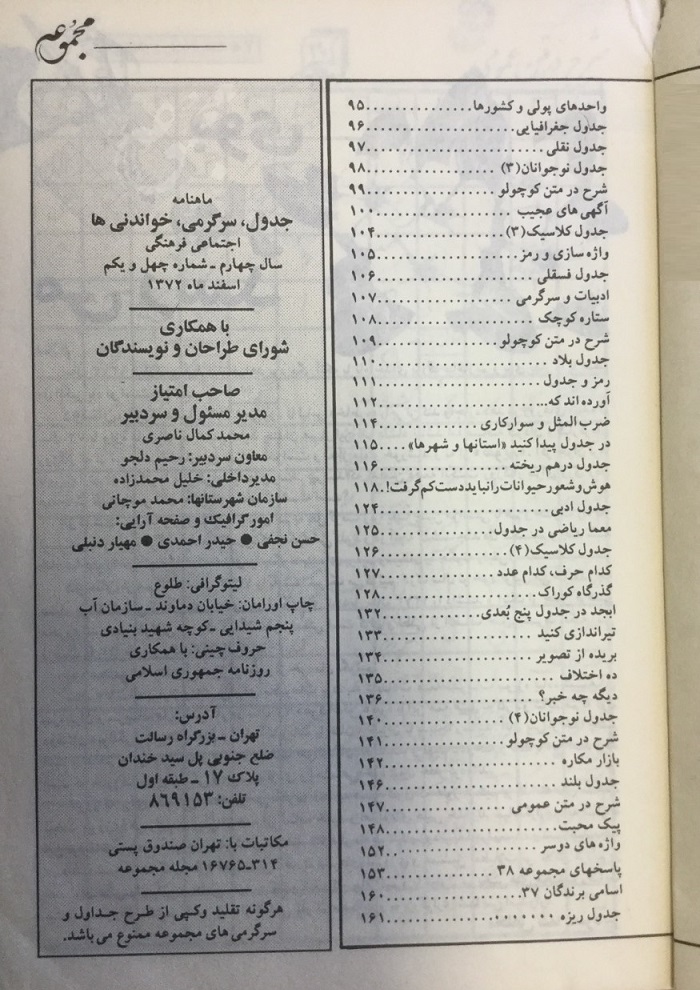 مجموعه
واحدهای پولی و کشورها...............۹۵
جدول جغرافیایی...............۹۶
جدول نقلی...............۹۷
جدول نوجوانان(۳)...............۹۸
شرح در متن کوچولو...............۹۹
آگهی های عجیب...............۱۰۰
جدول کلاسیک(۳)...............۱۰۴
واژه سازی و رمز...............۱۰۵
جدول فسقلی...............۱۰۶
ادبیات و سرگرمی...............۱۰۷
ستاره کوچک...............۱۰۸
شرح در متن کوچولو...............۱۰۹
جدول بلاد...............۱۱۰
رمز و جدول...............۱۱۱
آورده اند که...............۱۱۲
ضرب المثل و سوارکاری...............۱۱۴
در جدول پیدا کنید «استانها و شهرها»....۱۱۵
جدول درهم ریخته...............۱۱۶
هوش و شعور حیوانات را نباید دست کم گرفت!.۱۱۸
جدول ادبی...............۱۲۴
معما ریاضی در جدول...............۱۲۵
جدول کلاسیک(۴)...............۱۲۶
کدام حرف، کدام عدد...............۱۲۷
گذرگاه کوراک...............۱۲۸
ابجد در جدول پنج بُعدی...............۱۳۲
تیراندازی کنید...............۱۳۳
بریده از تصویر...............۱۳۴
ده اختلاف...............۱۳۵
دیگه چه خبر؟...............۱۳۶
جدول نوجوانان(۴)...............۱۴۰
شرح در متن کوچولو...............۱۴۱
بازار مکاره...............۱۴۲
جدول بلند...............۱۴۶
شرح در متن عمومی...............۱۴۷
پیک محبت...............۱۴۸
واژه های دوسر...............۱۵۲
پاسخهای مجموعه ۳۸...............۱۵۳
اسامی برندگان ۳۷...............۱۶۰
جدول ریزه...............۱۶۱
ماهنامه
جدول، سرگرمی، خواندنی ها
اجتماعی فرهنگی
سال چهارم ـ شماره چهل و یکم
اسفند ماه ۱۳۷۲
با همکاری
شورای طراحان و نویسندگان
صاحب امتیاز
مدیر مسئول و سردبیر
محمد کمال ناصری
معاون سردبیر: رحیم دلجو
مدیرداخلی: خلیل محمدزاده
سازمان شهرستانها: محمد موچانی
امور گرافیک و صفحه آرایی:
حسن نجفی ● حیدر احمدی ● مهیار دنبلی
لیتوگرافی: طلوع
چاپ اورامان: خیابان دماوند ـ سازمان آب
پنجم شیدایی ـ کوچه شهید بنیادی
حروف چینی: با همکاری
روزنامه جمهوری اسلامی
آدرس:
تهران ـ بزرگراه رسالت
ضلع جنوبی پل سید خندان
پلاک ۱۷ ـ طبقه اول
تلفن: ۸۶۹۱۵۳
مکاتبات با: تهران صندوق پستی
۳۱۴ـ۱۶۷۶۵ مجله مجموعه
هرگونه تقلید وکپی از طرح جداول و
سرگرمی های مجموعه ممنوع می باشد.